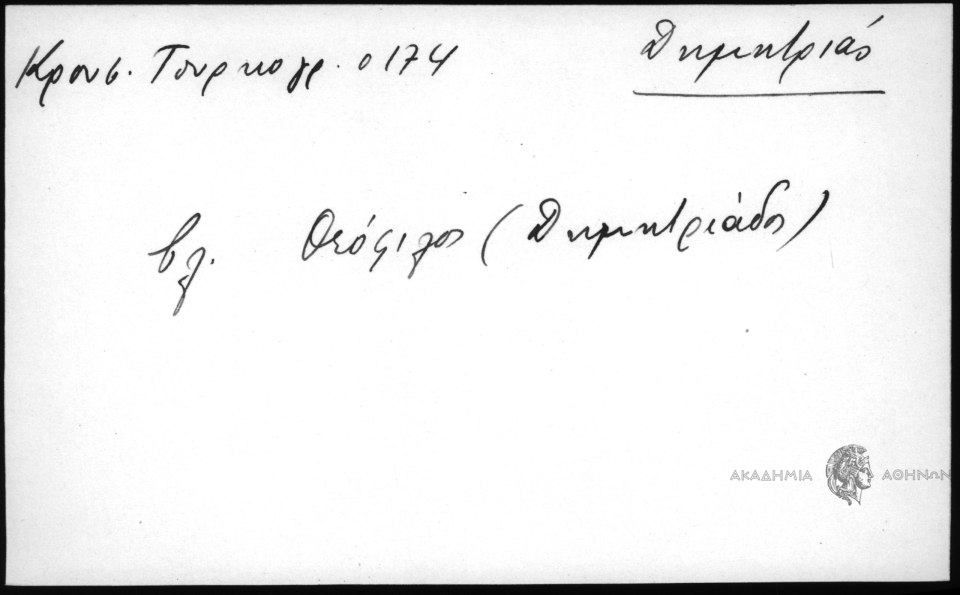 Κρουσ. Τουρκογρ. σ 174
Δημητριάς
βλ. Θεόφιλος (Δημητριάδος)
ΑΚΑΔΗΜΙΑ ΑΘΗΝΩΝ